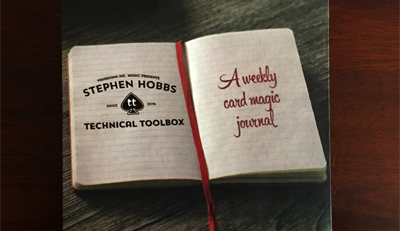 VANISHING INC. MAGIC PRESENTS
STEPHEN HOBBS
SINCE
tt
2016
TECHNICAL TOOLBOX
A weekly
card magic
journal